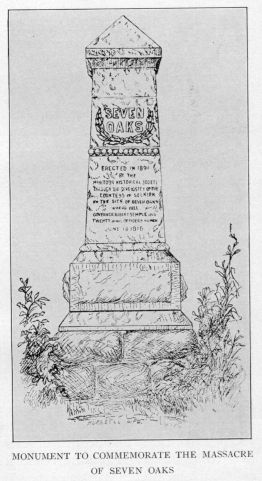 SEVEN
OAKS
ERECTED IN 1891
BY THE
MANITOBA HISTORICAL SOCIETY
THROUGH THE GENEROSITY OF THE
COUNTESS OF SELKIRK
ON THE SITE OF SEVEN OAKS
WHERE FELL
GOVERNOR ROBERT SEMPLE AND
TWENTY OF HIS OFFICERS AND MEN
JUNE 19 1816
MONUMENT TO COMMEMORATE THE MASSACRE
OF SEVEN OAKS